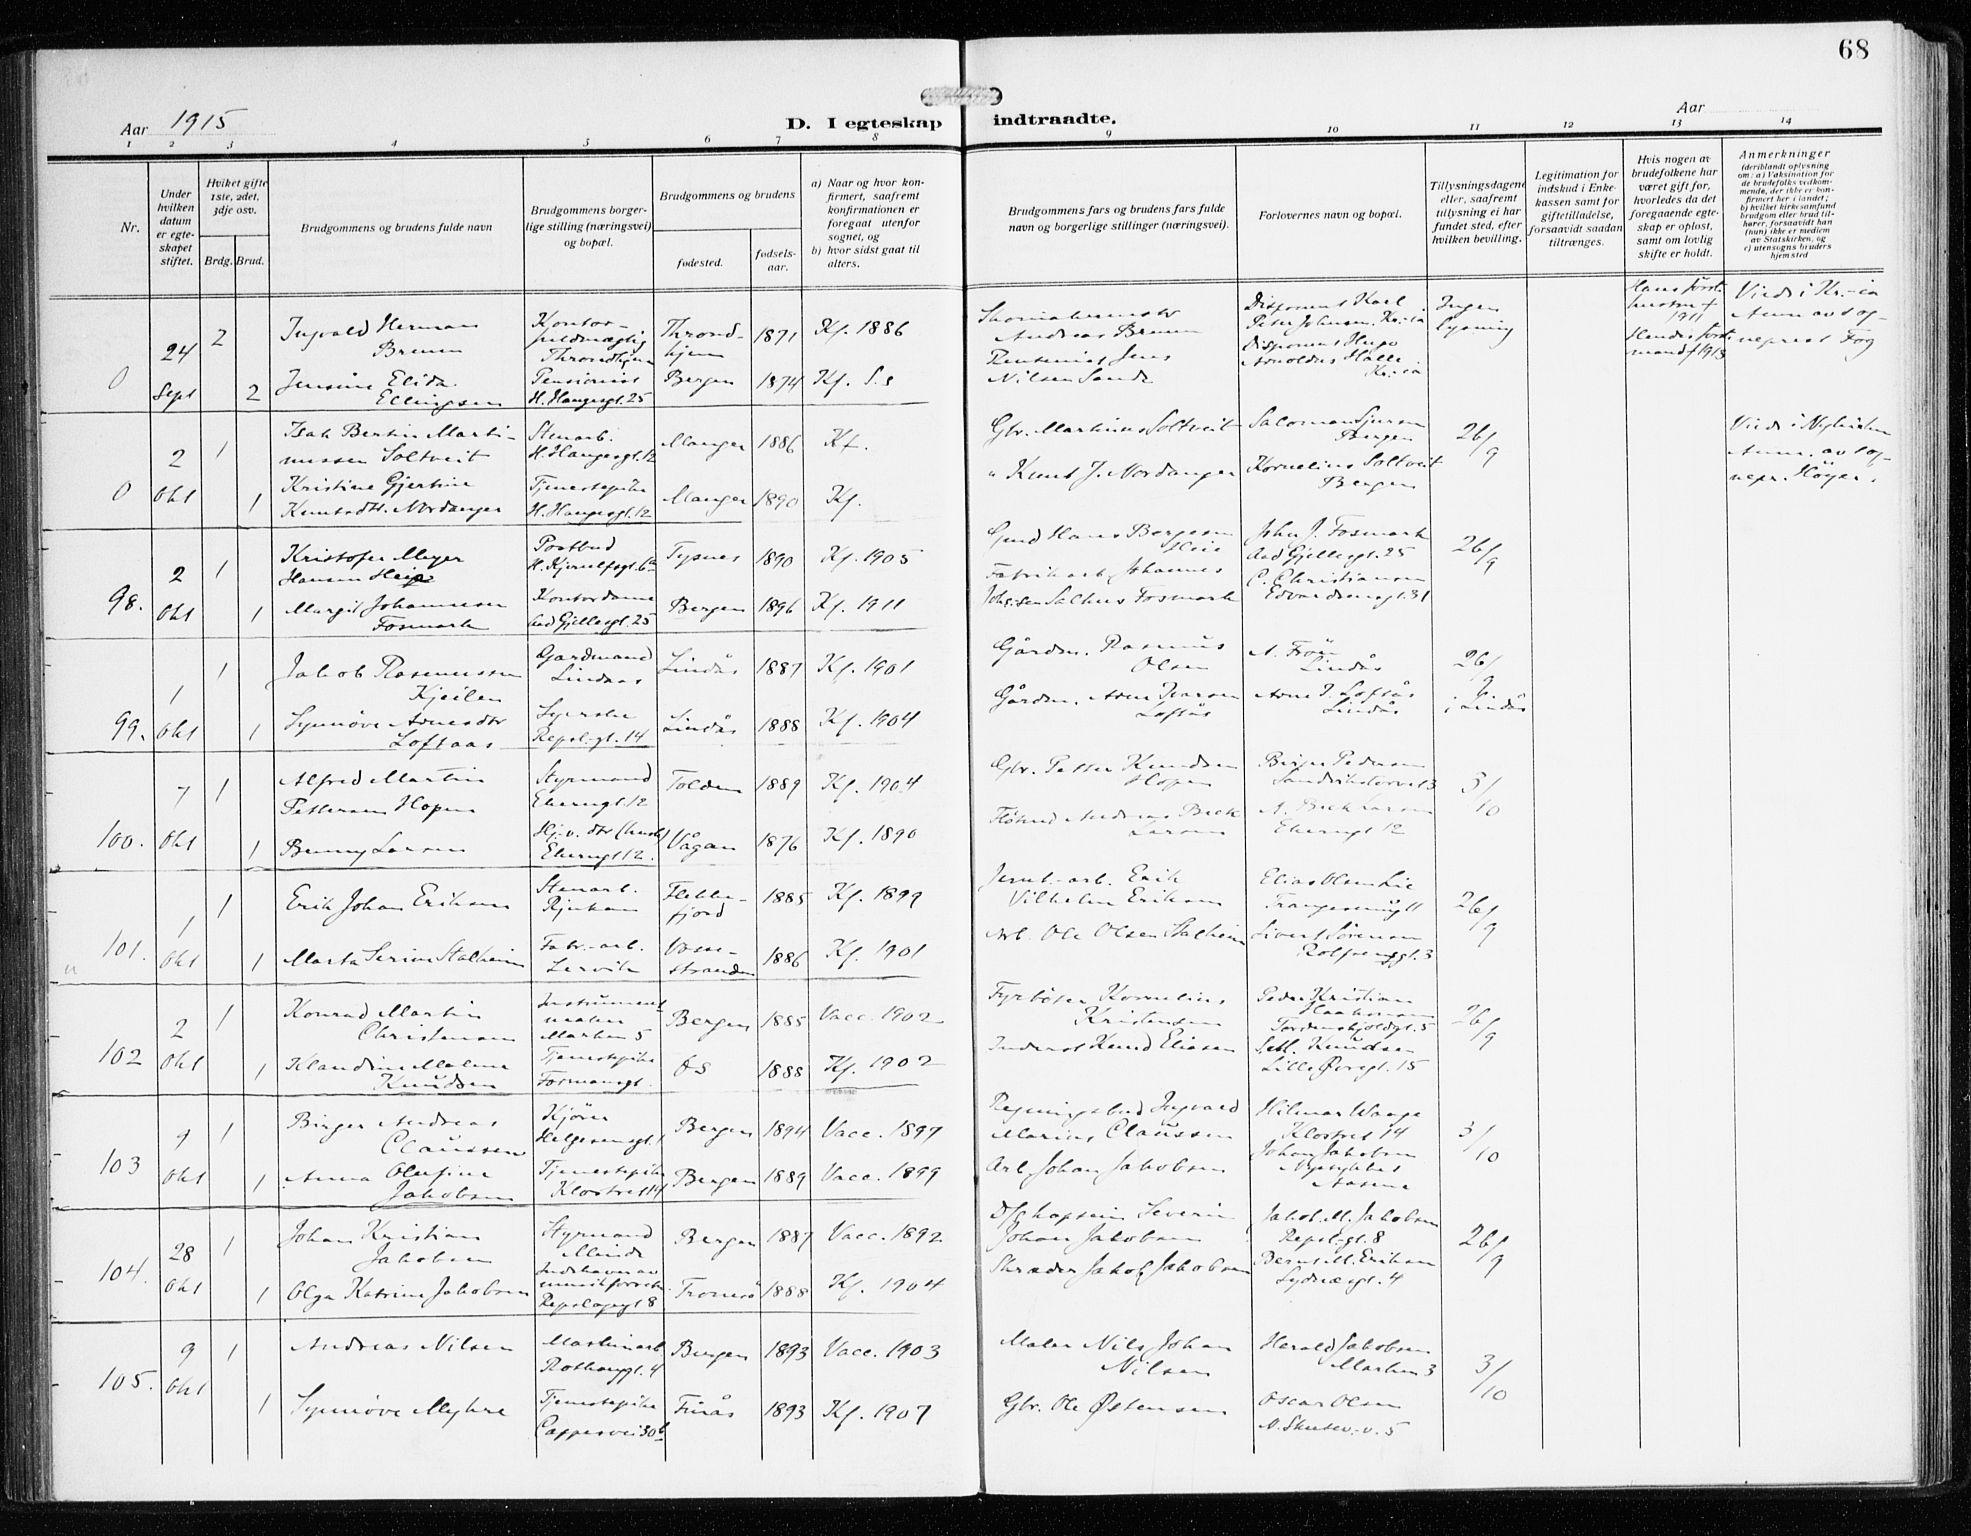 68
Aar 1915
D. I egteskap indtraadte.
Aar
1 2 3 4 5 6 7 8 9 10 11 12 13 14
Nr.
Under hvilken datum er egteskapet stiftet.
Hviket gifte 1ste, 2det, 3dje osv.
Brdg. Brud.
Brudgommens og brudens fulde navn
Brudgommens borgerlige stilling (næringsvei) og bopæl.
Brudgommens og brudens
fødested.
fødselsaar.
a) Naar og hvor konfirmert, saafremt konfirmationen er foregaat utenfor sognet, og
b) hvor sidst gaat til alters.
Brudgommens fars og brudens fars fulde navn og borgerlige stillinger (næringsvei).
Forlovernes navn og bopæl.
Tillysningsdagene eller, saafremt tillysning ei har fundet sted, efter hvilken bevilling.
Legitimation for indskud i Enkekassen samt for giftetilladelse, forsaavidt saadan tiltrænges.
Hvis nogen av brudefolkene har været gift før, hvorledes da det foregaaende egteskap er opløst, samt om lovlig skifte er holdt.
Anmerkninger
(deriblandt oplysning om: a) Vaksination for de brudefolks vedkommende, der ikke er konfirmert her i landet; b) hvilket kirkesamfund brudgom eller brud tilhører, forsaavidt han (hun) ikke er medlem av Statskirken, og c) utensogns bruders hjemsted
0
24 Sept
2
Ingvald Herman Breum
Kontorfuldmægtig Throndhjem
Throndhjem
1871
Kf. 1886
Andreas Breum
Disponent Karl Peter Johnsen, Kr.ia
Ingen lysning
Viede i Kr.-ia
2
Jensine Elida Ellingsen
Pensionist H. Haugesgt. 25
Bergen
1874
Kf. S.s
Nilsen Sande
Disponent Hugo Arnoldus Halle Kr.ia
0
2 Okt
1
Isak Bertin Martinussen Soltveit
Stenarb. H. Haugesgt. 12
Manger
1886
Kf.
Gbr. Martinus Soltveit
Salomon Sjursen Bergen
26/9
Viede i Nykirken
1
Kristine Gjertine Knutsdtr. Nordanger
Tjenestepike H. Haugesgt. 12
Manger
1890
Kf.
" Knut J. Nordanger
Kornelius Soltveit Bergen
98.
2 Okt
1
Kristofer Meyer Hansen Heie
Postbud
Tysnes
1890
Kf. 1905
Hans Børgesen Heie
John J. Fosmark Aad Gjellesgt. 25
26/9
1
Margit Johannesen Fosmark
Kontordame Aad Gjellesgt. 25
Bergen
1896
Kf. 1911
Fabrikarb. Johannes Salhus Fosmark
C. Christiansen Edvardsensgt. 31
99.
1 Okt
1
Jakob Rasmussen Kjeilen
Gardmand Lindaas
Lindås
1887
Kf. 1901
Gårdm. Rasmus Olsen
Lindås
26/9 i Lindås
1
Synnøve Arnesdtr Loftaas
Syerske Repsl.-gt. 14
Lindås
1888
Kf. 1904
Gårdm. Arne Iversen Loftås
Arne I. Loftås Lindås
100.
7 Okt
1
Alfred Martin Pettersen Hopen
Styrmand
Tolden
1889
Kf. 1904
Gbr. Petter Knudsen Hopen
Birger Pedersen
3/10
1
Benny Larsen
Vågan
1876
Kf. 1890
Andreas Beck Larsen
A. Beck Larsen
101.
1 Okt
1
Erik Johan Eriksen
Stenarb. Rjukan
Flekkefjord
1885
Kf. 1899
Jernb.-arb. Erik Vilhelm Eriksen
Elias Olsen Lie
26/9
1
Marta Serine Stalheim
Fabr.-arb. Lervik
Vossestranden
1886
Kf. 1901
Arb. Ole Olsen Stalheim
Sivert Sørensen Rolfsensgt. 3
102
2 Okt
1
Konrad Martin Christensen
Instrumentmaker Marken 5
Bergen
1885
Vacc. 1902
Fyrbøter Kornelius Kristensen
Peder Kristian Haakonsen Tordenskjoldgt. 5
26/9
1
Klaudine Malene Knudsen
Tjenestepike Fosmansgt.
Os
1888
Kf. 1902
Inderst Knud Eliasen
Knudsen Lille Øvregt. 15
103
9 Okt
1
Birger Andreas Claussen
Kjører Helgesensgt. 1
Bergen
1894
Vacc. 1897
Regningsbud Ingvald Marius Claussen
Hilmar Waage Klostret 14
3/10
1
Anna Olufine Jakobsen
Tjenestepike Klostret 14
Bergen
1889
Vacc. 1899
Arb. Johan Jakobsen
Johan Jakobsen
104.
28 Okt
1
Johan Kristian Jakobsen
Styrmand Minde
Bergen
1887
Vacc. 1892
Severin Johan Jakobsen
Jakob M. Jakobsen Repsl.-gt. 8
26/9
1
Olga Katrine Jakobsen
Indehaver av Repslagergt 8
Tromsø
1888
Kf. 1904
Skræder Jakob Jakobsen
Bernt M. Eriksen Sydnesgt. 4
105.
9 Okt
1
Andreas Nilsen
Maskinarb. Rothaugt. 4
Bergen
1893
Vacc. 1903
Maler Nils Johan Nilsen
Harald Jakobsen Marken 3
3/10
1
Synnøve Myhre
Tjenestepike Cappesvei 30b
Furås
1893
Kf. 1907
Gbr. Ole Østensen
Oscar Olsen